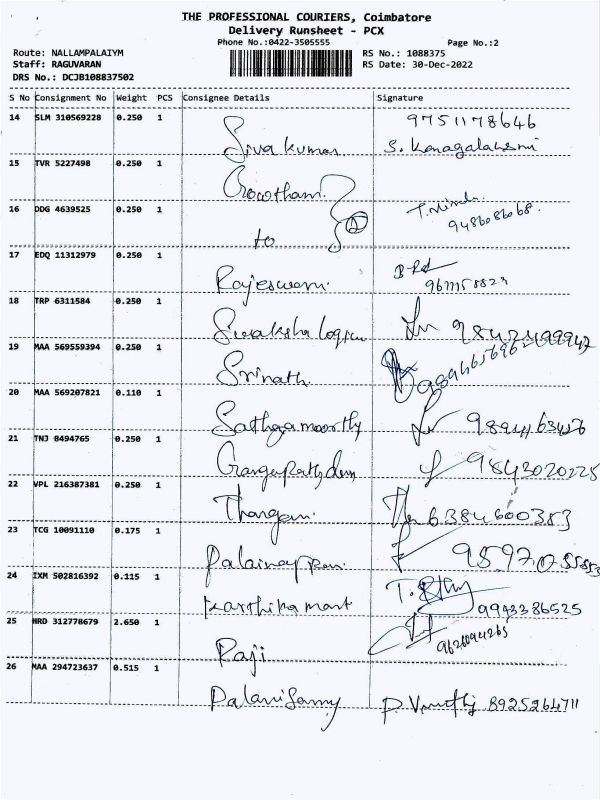 THE PROFESSIONAL COURIERS, Coimbatore
Delivery Runsheet - PCX
Phone No.:0422-3505555 Page No.:2
Route: NALLAMPALAIYM RS No.: 1088375
Staff: RAGUVARAN RS Date: 30-Dec-2022
DRS No.: DCJB108837502
S No Consignment No Weight PCS Consignee Details Signature
14 SLM 310569228 0.250 1 Sivakumar 9751178646
S. Kanagalakshmi
15 TVR 5227498 0.250 1 Gowtham
16 DDG 4639525 0.250 1 to 9486086068.
17 EDQ 11312979 0.250 1 Rajeswari
18 TRP 6311584 0.250 1 Sivaksha
19 MAA 569559394 0.250 1 Srinath
20 MAA 569207821 0.110 1 Sathyamoorthy
21 TNJ 8494765 0.250 1 9843020225
22 VPL 216387381 0.250 1 Thangam 6384600353
23 TCG 10091110 0.175 1
24 IXM 502816392 0.115 1 Karthika mart 9943386525
25 HRD 312778679 2.650 1 Raji 9626094265
26 MAA 294723637 0.515 1 Palanisamy 8925264711